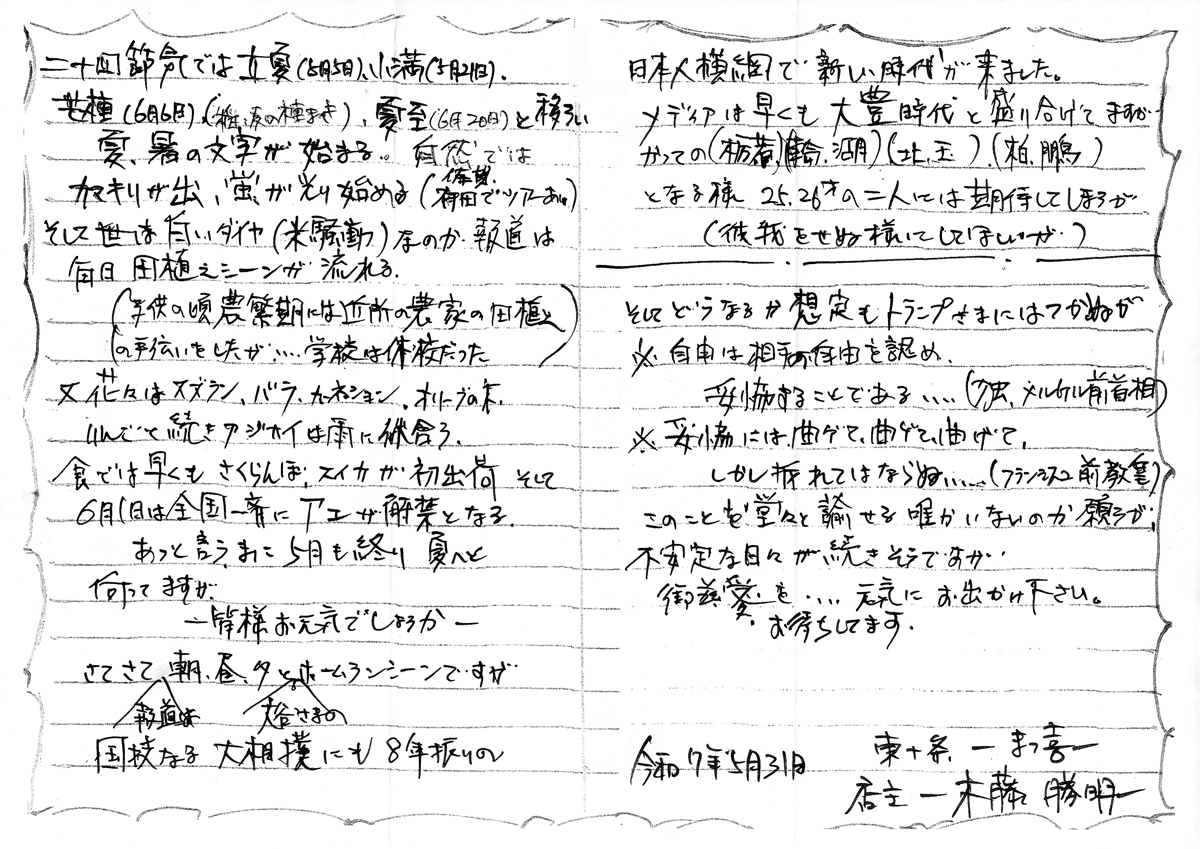 二十四節気では立夏(5月5日)、小満(5月21日)、
芒種(6月6日)(稲、麦の種まき)、夏至(6月20日)と移ろい
夏、暑の文字が始まる。自然では
カマキリが出、蛍が光り始める(でツアーあり)
そして世は白いダイヤ(米騒動)なのか報道は
毎日田植えシーンが流れる。
(子供の頃農繁期には近所の農家の田植え
の手伝いをしたが....学校は休校だった)
又花々はスズラン、バラ、カーネーション、オリーブの木、
りんごと続きアジサイは雨に似合う。
食では早くもさくらんぼ、スイカが初出荷そして
6月1日は全国一斉にアユが解禁となる。
あっと言うまに5月も終り夏へと
向ってますが、
ー皆様お元気でしょうかー
さてさて朝、昼、夕とホームランシーンですが
報道は 大谷さまの
国技なる大相撲にも8年振りの
日本人横綱で新しい時代が来ました。
メディアは早くも大豊時代と盛り合げてますが
かっての(栃若)(輪、湖)(北、玉)、(柏、鵬)
となる様25.26才の二人には期待してしまうが
(怪我をせぬ様にしてほしいが)
そしてどうなるか想定もトランプさまにはつかぬが
※自由は相手の自由を認め、
妥協することである....(独、メルケル前首相)
※妥協には曲げて、曲げて、曲げて、
しかし折れてはならぬ.....(フランシスコ前教皇)
このことを堂々と諭せる誰かいないのか願うが、
不安定な日々が続きそうですが
御慈愛を....元気にお出かけ下さい。
お待ちしてます。
令和7年5月31日
東十条ーまつ喜ー
店主ー木藤勝明ー